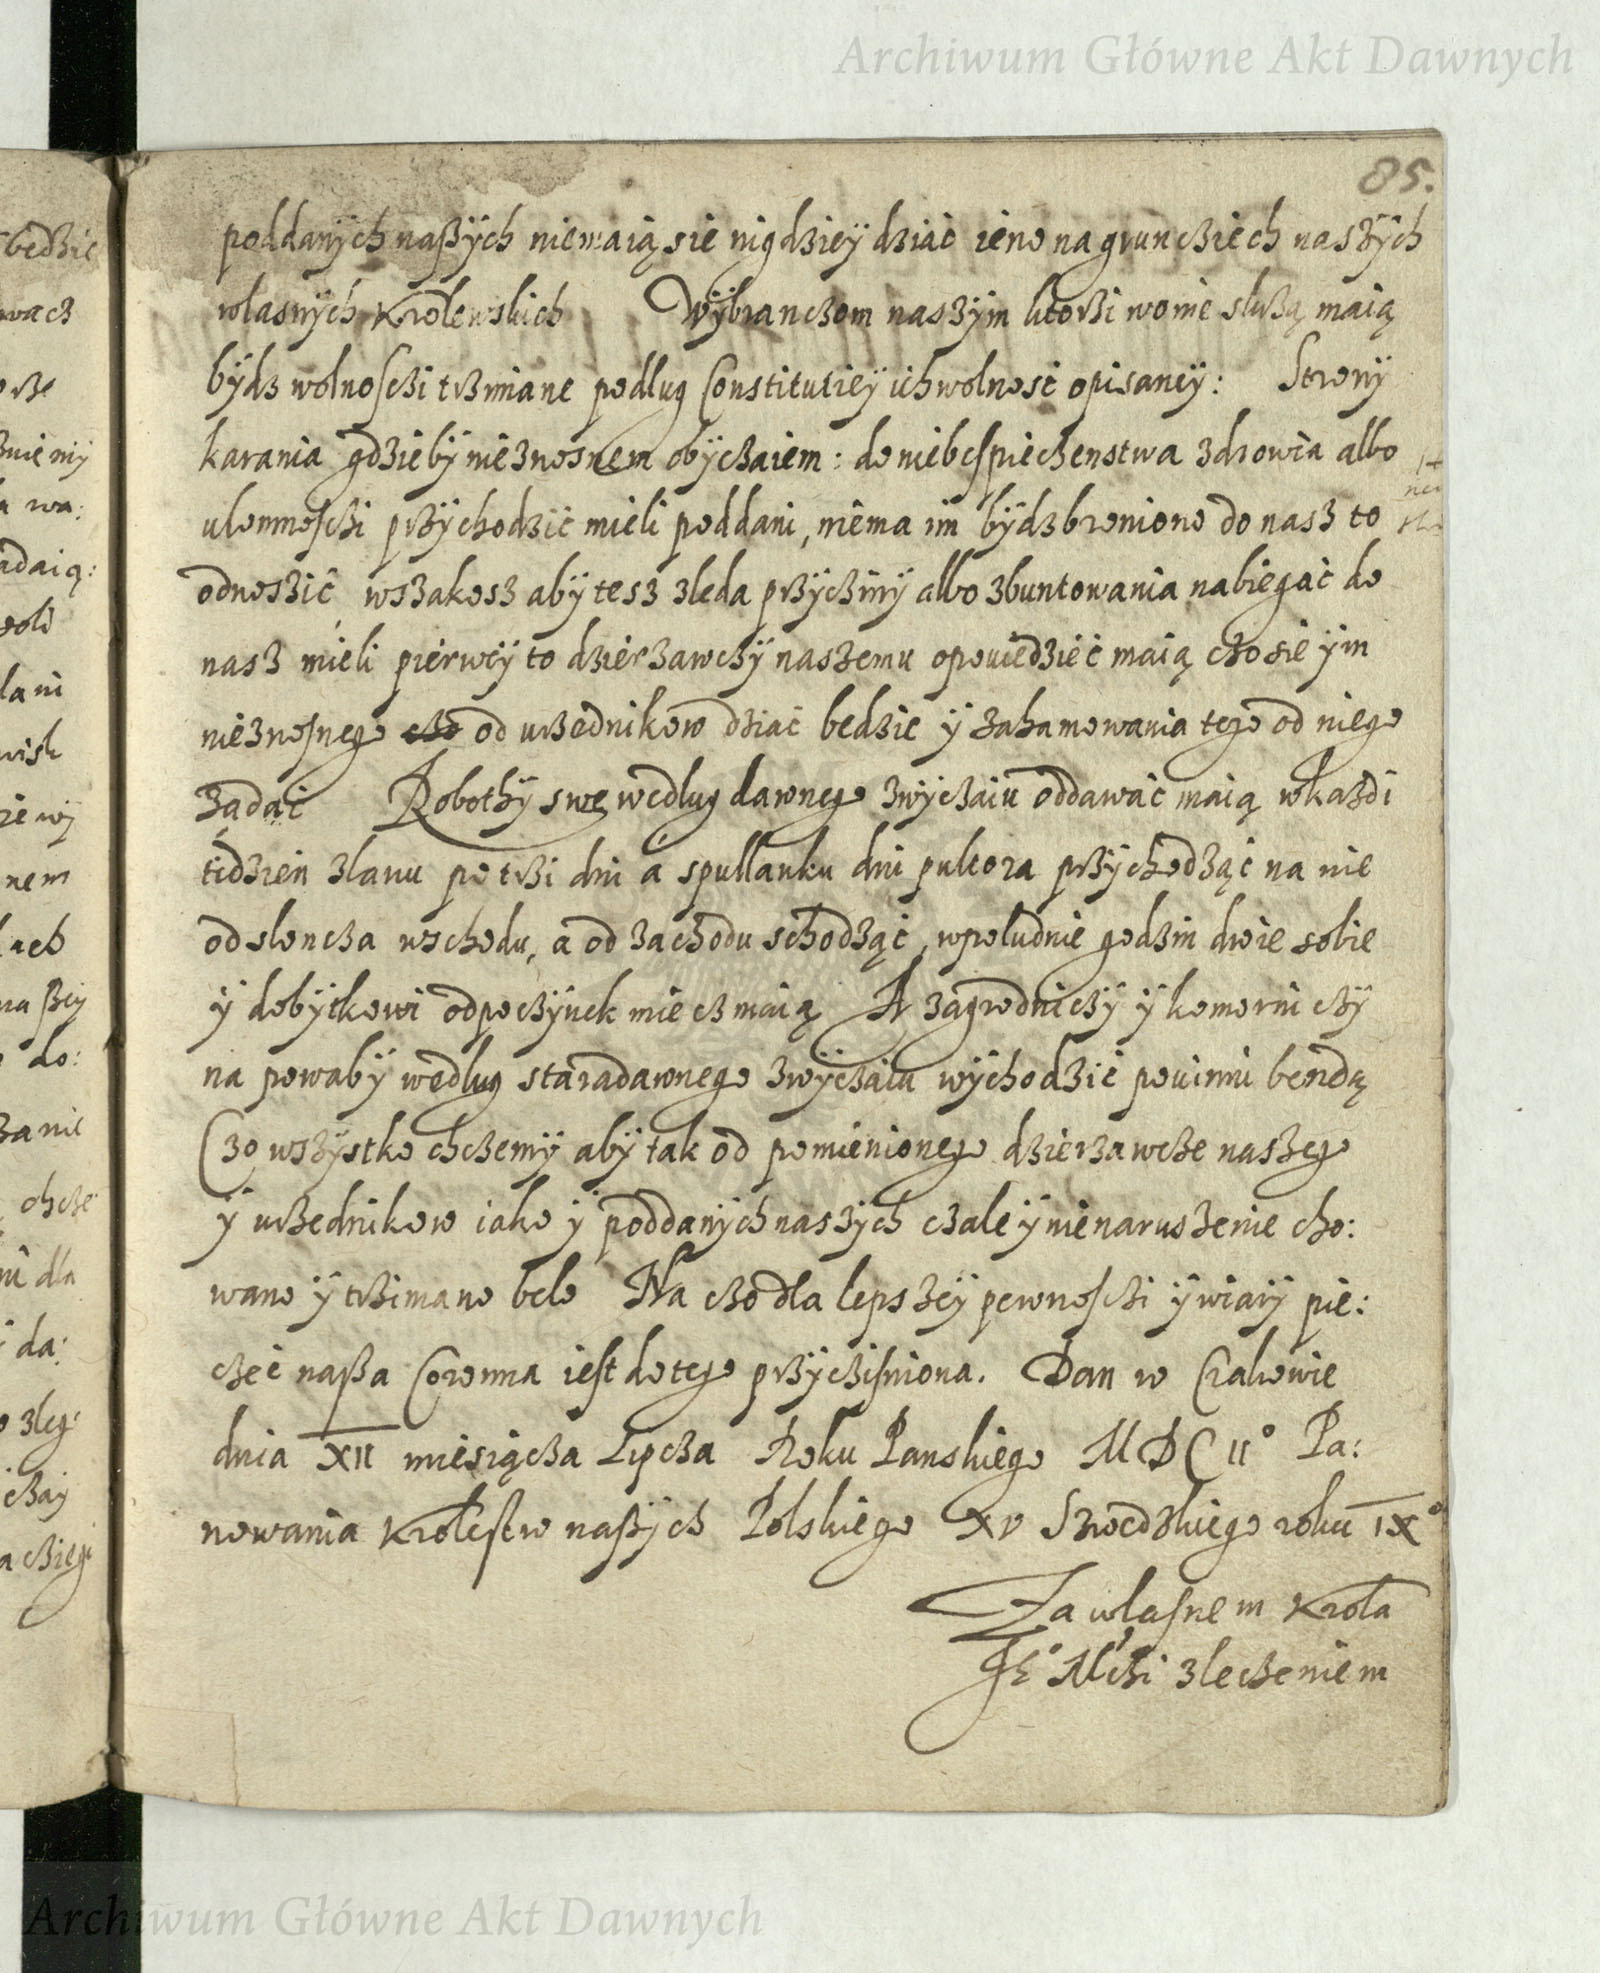 Archiwum Główne Akt Dawnych
85.
poddanÿch naßÿch niemaią sie nigdzieÿ dziać ieno na gruncziech naszÿch
własnÿch Krolewskich Wÿbranczom naszÿm ktorzi womie służą maią
bÿdz wolnosczi trzmiane podlug Constitutieÿ ich wolnosc opisaneÿ: Stronÿ
karania gdziebÿ nieznosnem obÿczaiem: do niebespieczenstwa zdrowia albo
ulomnosczi przÿchodzić mieli poddani, niema im bÿdz broniono do nasz to
odnoszić wszakosz abÿ tesz zleda przÿczinÿ albo zbuntowania nabiegać do
nasz mieli pierweÿ to dzierzawczÿ naszemu opowiedzieć maią czo sie ÿm
nieznosnego od urzednikow dziać bedzie ÿ zahamowania tego od niego
ządać Robothÿ swe wedlug dawnego zwÿczaiu oddawać maią wkażdi
tidzien zlanu po trzi dni a spullanku dni pultora przÿchodząc na nie
od sloncza wschodu, a od zachodu schodząć, wpoludnie godzin dwie sobie
ÿ dobÿtkowi odpoczÿnek miecz maią A zagrodniczÿ ÿ komorniczÿ
na powabÿ wedlug staradawnego zwÿczaiu wÿchodzić powinni bendą
Czo wszÿstko chczemÿ abÿ tak od pomienionego dzierzawcze naszego
ÿ urzednikow iako ÿ poddanÿch naszÿch czale ÿ nienaruszenie cho:
wano ÿ trzimano belo Na czo dla lepszeÿ pewnosczi ÿ wiarÿ pie:
czeć naßa Coronna iest do tego przÿczisniona. Dan w Crakowie
dnia XII miesiącza Lipcza Roku Panskiego MDCII° Pa:
nowania Krolestw naßÿch Polskiego XV Szwedzkiego roku IX°
Za własnem Krola
Je° Mczi zleczeniem
Archiwum Główne Akt Dawnych